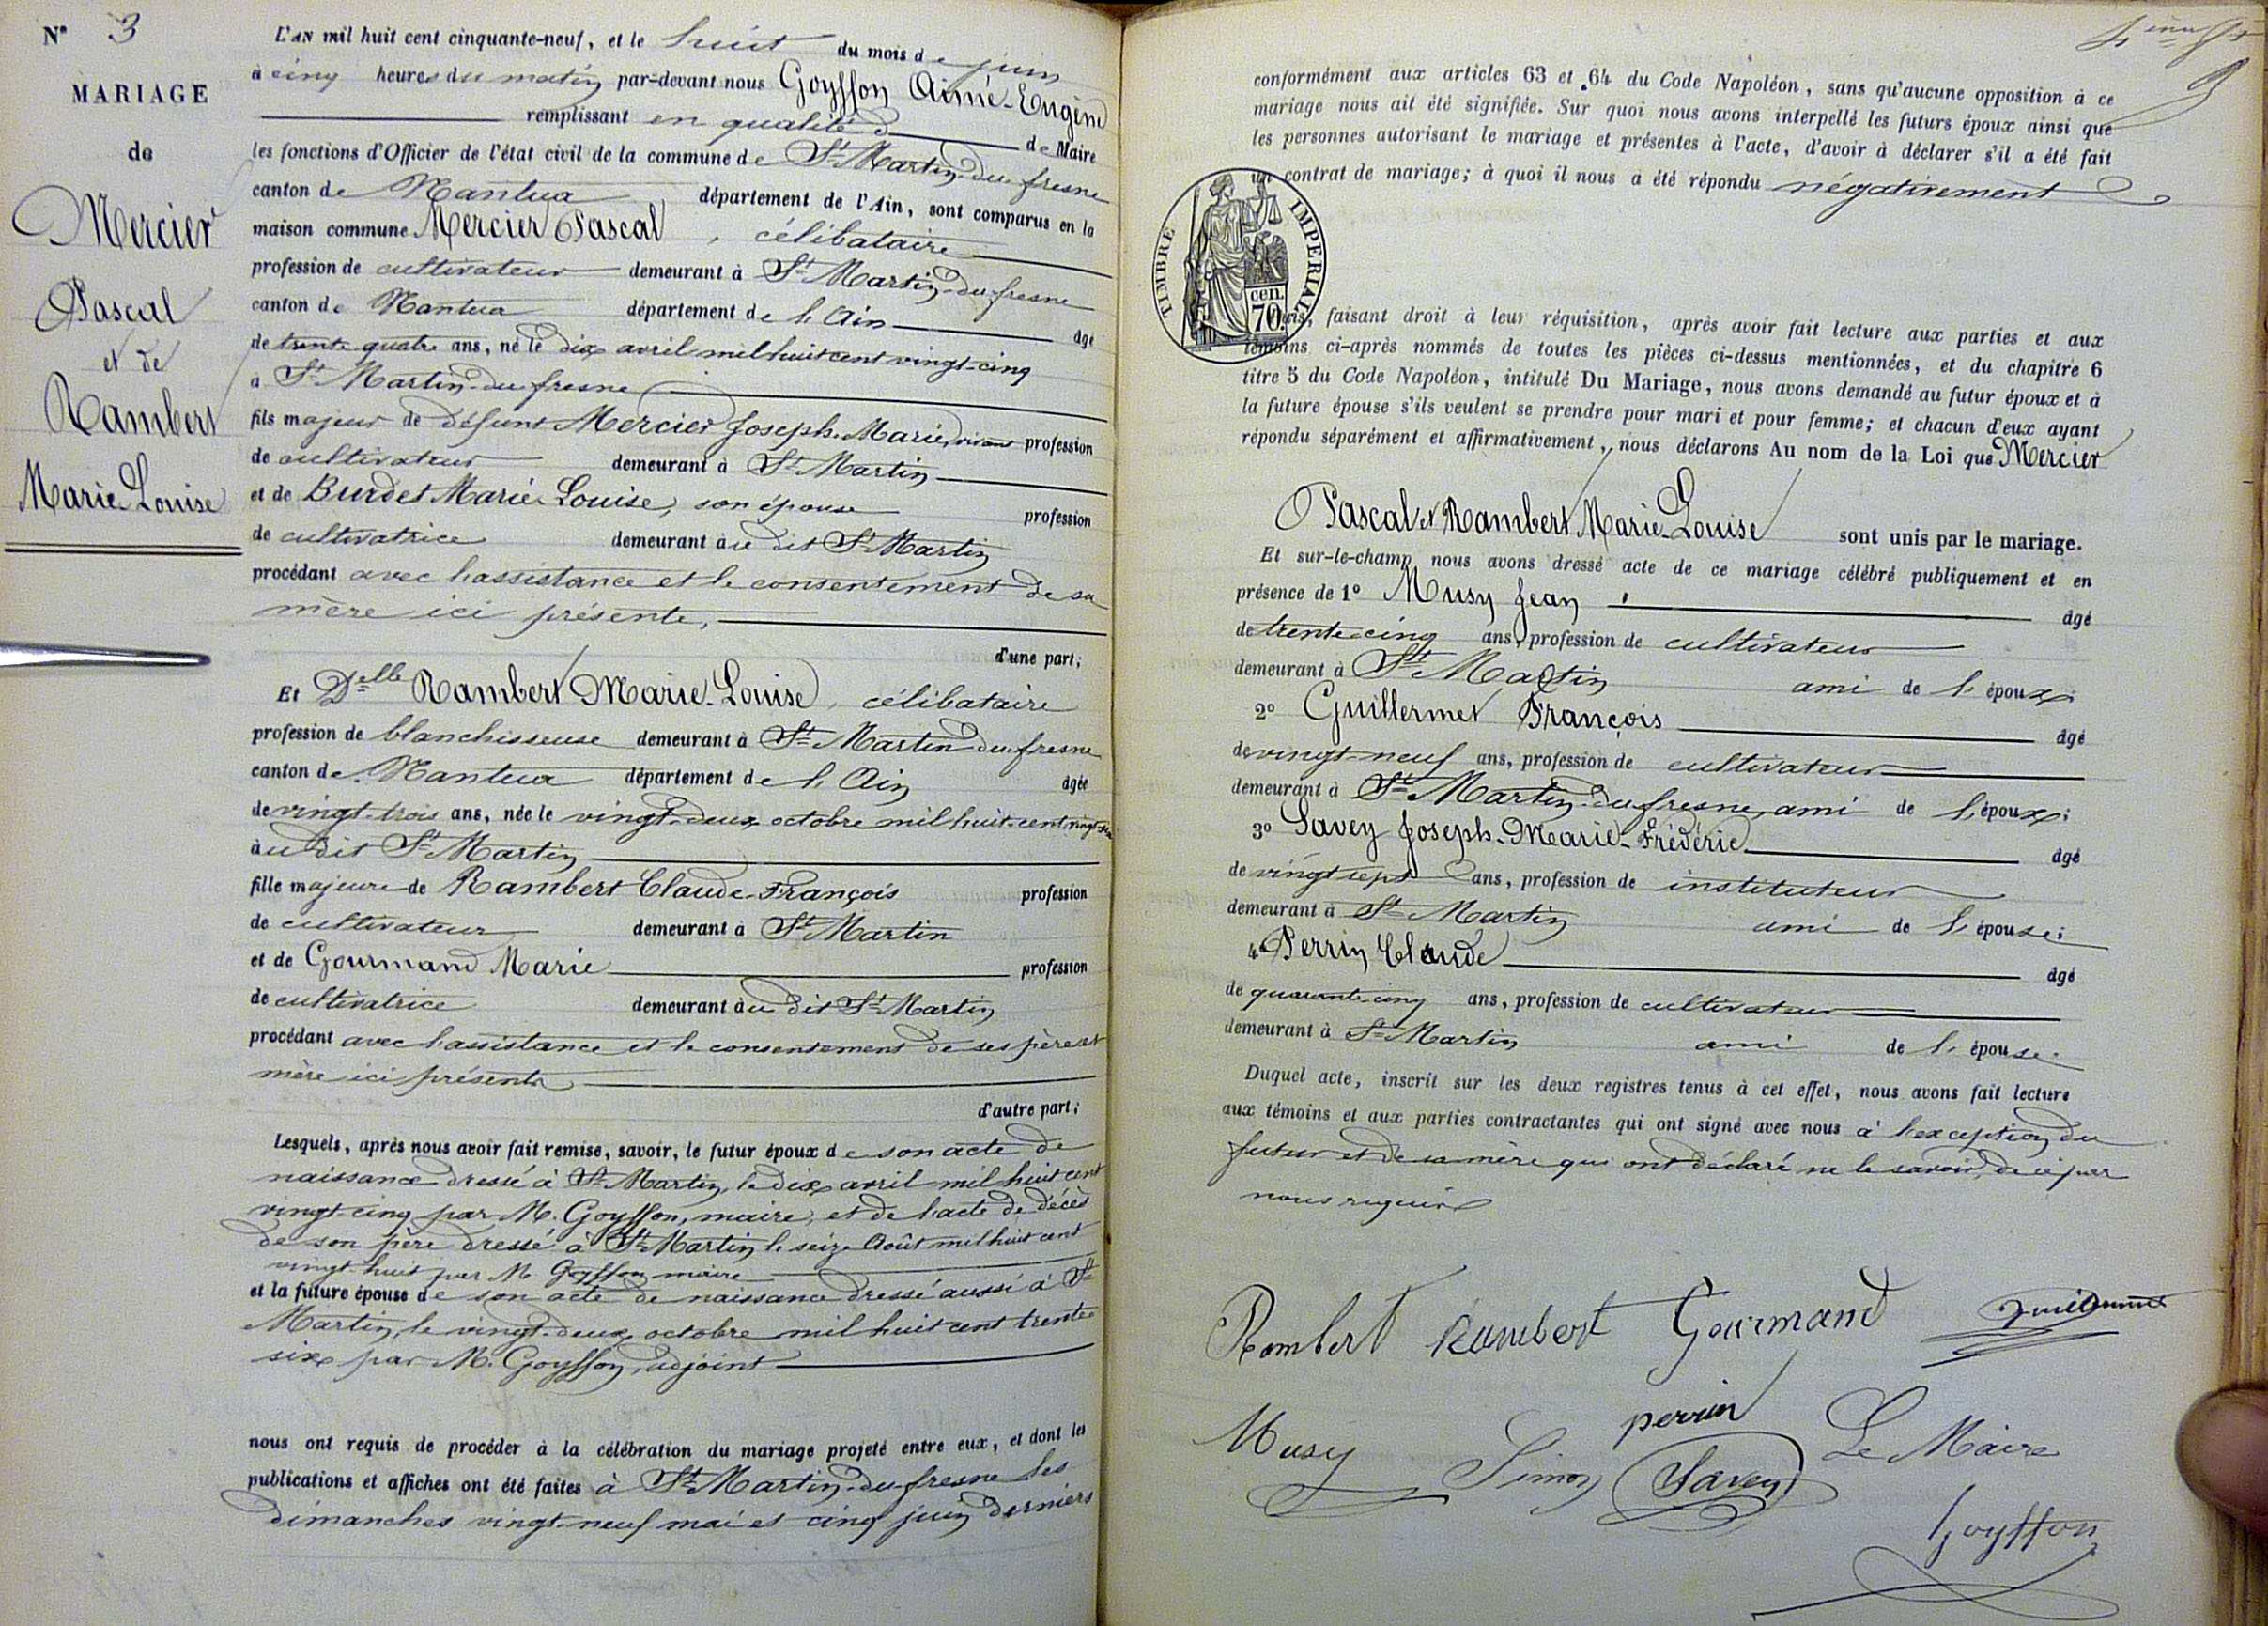 N° 3
MARIAGE
de
Mercier
Pascal
et de
Rambert
Marie Louise
L'AN mil huit cent cinquante-neuf, et le huit du mois de juin
à cinq heures du matin par-devant nous Goyffon Aimé-Eugène
remplissant en qualité de Maire
les fonctions d'Officier de l'état civil de la commune de St Martin-du-fresne
canton de Nantua département de l'Ain, sont comparus en la
maison commune Mercier Pascal, célibataire
profession de cultivateur demeurant à St Martin-du-fresne
canton de Nantua département de l'Ain âgé
de trente quatre ans, né le dix avril mil huit cent vingt-cinq
à St Martin-du-fresne
fils majeur de défunt Mercier Joseph-Marie, vivant profession
de cultivateur demeurant à St Martin
et de Burdet Marie-Louise, son épouse profession
de cultivatrice demeurant àu dit St Martin
procédant avec l'assistance et le consentement de sa
mère ici présente,
d'une part;
Et Delle Rambert Marie-Louise, célibataire
profession de blanchisseuse demeurant à St Martin-du-fresne
canton de Nantua département de l'Ain âgée
de vingt-trois ans, née le vingt-deux octobre mil huit-cent
àu dit St Martin
fille majeure de Rambert Claude-François profession
de cultivateur demeurant à St Martin
et de Gourmand Marie profession
de cultivatrice demeurant àu dit St Martin
procédant avec l'assistance et le consentement de ses père et
mère ici présents
d'autre part;
Lesquels, après nous avoir fait remise, savoir, le futur époux de son acte de
naissance dressé à St Martin, le dix avril mil huit cent
vingt-cinq par M. Goyffon, maire, et de l'acte de décès
de son père dressé à St Martin le seize Août mil huit cent
vingt-huit par M. Goyffon maire
et la future épouse de son acte de naissance dressé aussi à St
Martin, le vingt-deux octobre mil huit cent trente
six par M. Goyffon, adjoint
nous ont requis de procéder à la célébration du mariage projeté entre eux, et dont les
publications et affiches ont été faites à St Martin-du-fresne les
dimanches vingt-neuf mai et cinq juin derniers
conformément aux articles 63 et 64 du Code Napoléon, sans qu'aucune opposition à ce
mariage nous ait été signifiée. Sur quoi nous avons interpellé les futurs époux ainsi que
les personnes autorisant le mariage et présentes à l'acte, d'avoir à déclarer s'il a été fait
un contrat de mariage; à quoi il nous a été répondu négativement
TIMBRE IMPERIAL
cen.
70
faisant droit à leur réquisition, après avoir fait lecture aux parties et aux
témoins ci-après nommés de toutes les pièces ci-dessus mentionnées, et du chapitre 6
titre 5 du Code Napoléon, intitulé Du Mariage, nous avons demandé au futur époux et à
la future épouse s'ils veulent se prendre pour mari et pour femme; et chacun d'eux ayant
répondu séparément et affirmativement, nous déclarons Au nom de la Loi que Mercier
Pascal et Rambert Marie-Louise sont unis par le mariage.
Et sur-le-champ nous avons dressé acte de ce mariage célébré publiquement et en
présence de 1° Musy Jean âgé
de trente-cinq ans, profession de cultivateur
demeurant à St Martin ami de l'époux;
2° Guillermet François âgé
de vingt-neuf ans, profession de cultivateur
demeurant à St Martin-du-fresne, ami de l'époux;
3° Savey Joseph-Marie-Frédéric âgé
de vingt sept ans, profession de instituteur
demeurant à St Martin ami de l'épouse;
4° Perrin Claude âgé
de quarante-cinq ans, profession de cultivateur
demeurant à St Martin ami de l'épouse.
Duquel acte, inscrit sur les deux registres tenus à cet effet, nous avons fait lecture
aux témoins et aux parties contractantes qui ont signé avec nous à l'exception du
futur et de sa mère qui ont déclaré ne le savoir, de ce par
nous requis
Rambert Rambert Gourmand Guillermet
Musy Simon perrin Savey Le Maire
Goyffon